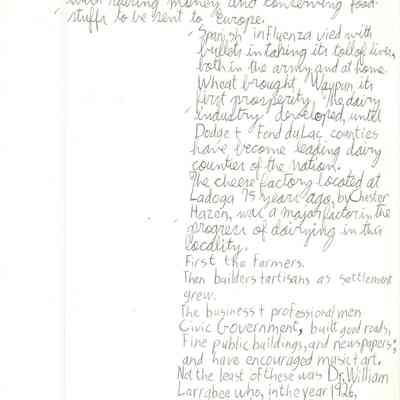 with saving money and conserving food-
stuffs to be sent to Europe.
Spanish influenza vied with
bullets in taking its toll of lives,
both in the army and at home.
Wheat brought Waupun its
first prosperity. The dairy
industry developed, until
Dodge + Fond du Lac counties
have become leading dairy
counties of the Nation.
The cheese factory located at
Ladoga 75 years ago, by Chester
Hazen, was a major factor in the
progress of dairying in this
locality.
First the Farmers.
Then builders + artisans as settlement
grew.
The business + professional men
Civic Government, built good roads,
Fine public buildings, and newspapers;
and have encouraged music + art.
Not the least of these was Dr. William
Larrabee who, in the year 1926,